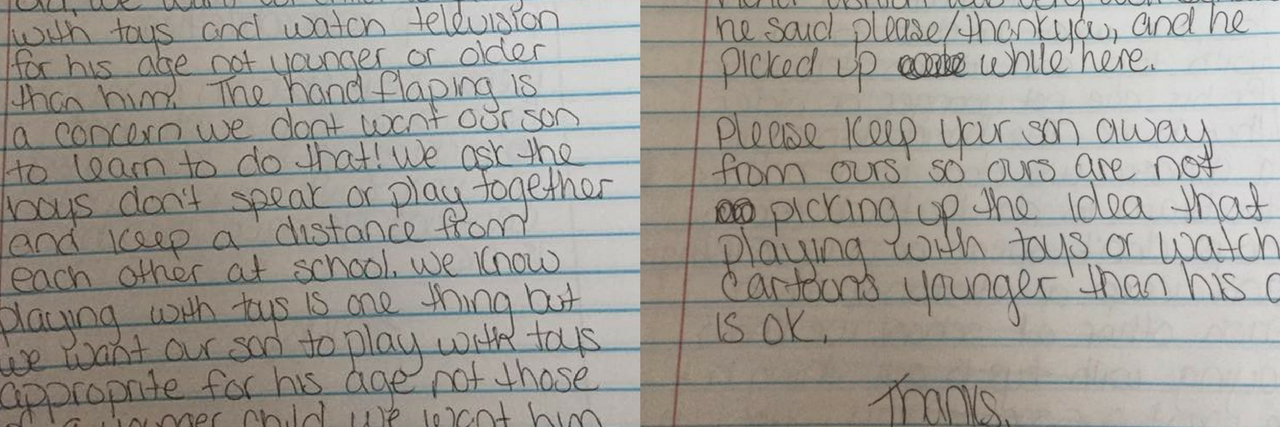 with toys and watch television
for his age not younger or older
than him. The hand flaping is
a concern we dont want our son
to learn to do that! We ask the
boys don't speak or play together
and keep a distance from
each other at school. we know
playing with toys is one thing but
we want our son to play with toys
approprite for his age not those
younger child we want him
he said please/thankyou, and he
picked up while here.
please keep your son away
from ours so ours are not
picking up the idea that
playing with toys or watch
cartoons younger than his
is ok.
Thanks.